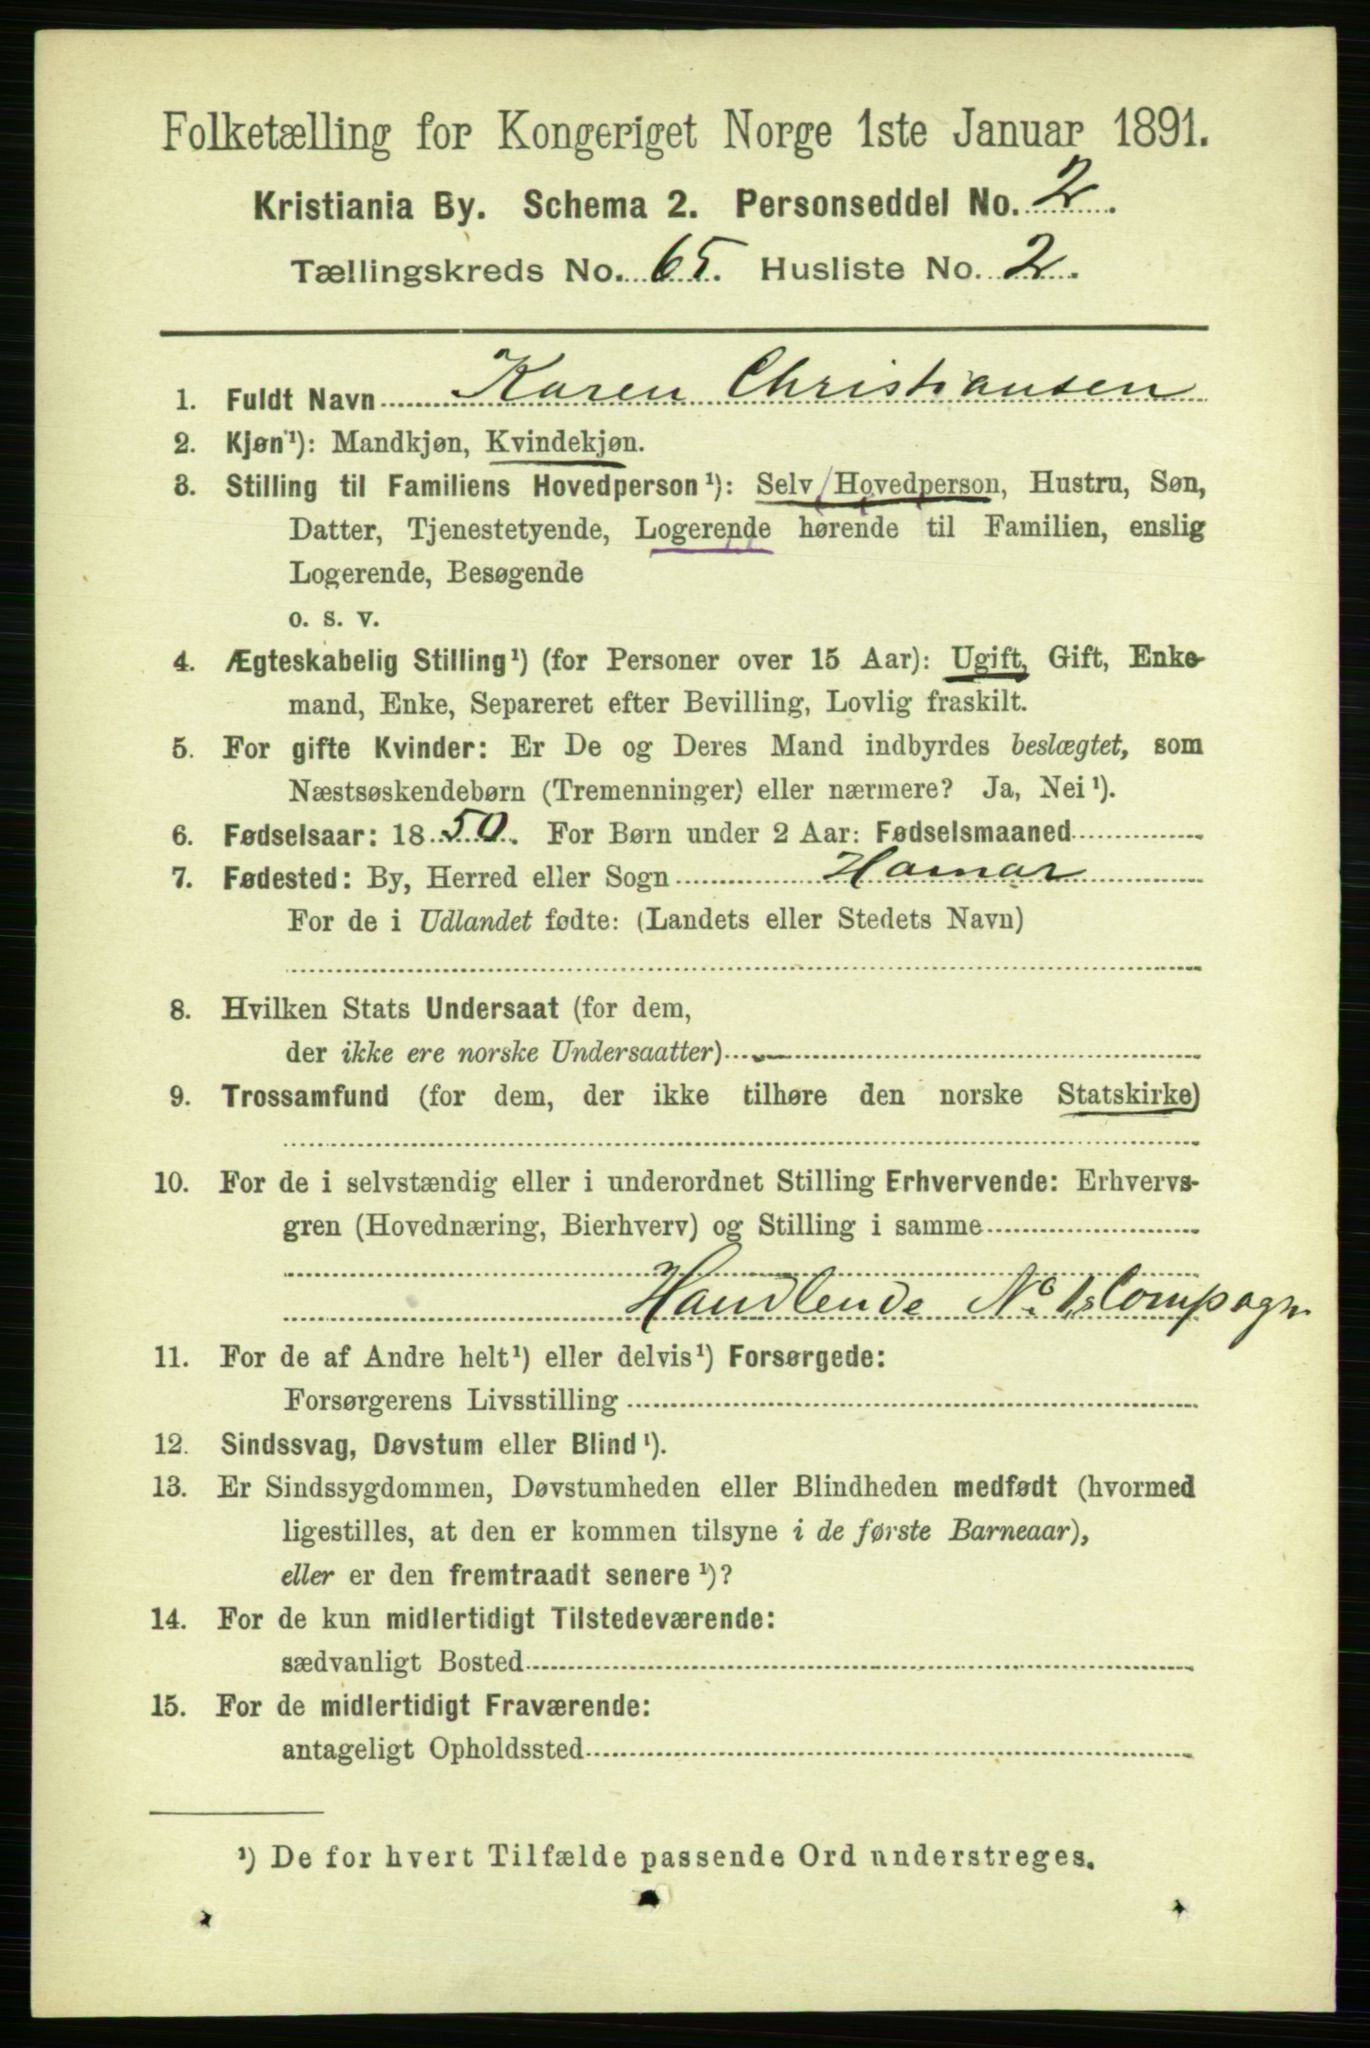 Folketælling for Kongeriget Norge 1ste Januar 1891.
Kristiania By. Schema 2. Personseddel No. 2.
Tællingskreds No. 65. Husliste No. 2.
1. Fuldt Navn Karen Christiansen
2. Kjøn¹): Mandkjøn, Kvindekjøn.
3. Stilling til Familiens Hovedperson¹): Selv/Hovedperson, Hustru, Søn,
Datter, Tjenestetyende, Logerende hørende til Familien, enslig
Logerende, Besøgende
o. s. v.
4. Ægteskabelig Stilling¹) (for Personer over 15 Aar): Ugift, Gift, Enke-
mand, Enke, Separeret efter Bevilling, Lovlig fraskilt.
5. For gifte Kvinder: Er De og Deres Mand indbyrdes beslægtet, som
Næstsøskendebørn (Tremenninger) eller nærmere? Ja, Nei¹).
6. Fødselsaar: 1850. For Børn under 2 Aar: Fødselsmaaned
7. Fødested: By, Herred eller Sogn Hamar
For de i Udlandet fødte: (Landets eller Stedets Navn)
8. Hvilken Stats Undersaat (for dem,
der ikke ere norske Undersaatter)
9. Trossamfund (for dem, der ikke tilhøre den norske Statskirke)
10. For de i selvstændig eller i underordnet Stilling Erhvervende: Erhvervs-
gren (Hovednæring, Bierhverv) og Stilling i samme
Handlende No. 1s Compagn
11. For de af Andre helt¹) eller delvis¹) Forsørgede:
Forsørgerens Livsstilling
12. Sindssvag, Døvstum eller Blind¹).
13. Er Sindssygdommen, Døvstumheden eller Blindheden medfødt (hvormed
ligestilles, at den er kommen tilsyne i de første Barneaar),
eller er den fremtraadt senere¹)?
14. For de kun midlertidigt Tilstedeværende:
sædvanligt Bosted
15. For de midlertidigt Fraværende:
antageligt Opholdssted
¹) De for hvert Tilfælde passende Ord understreges.